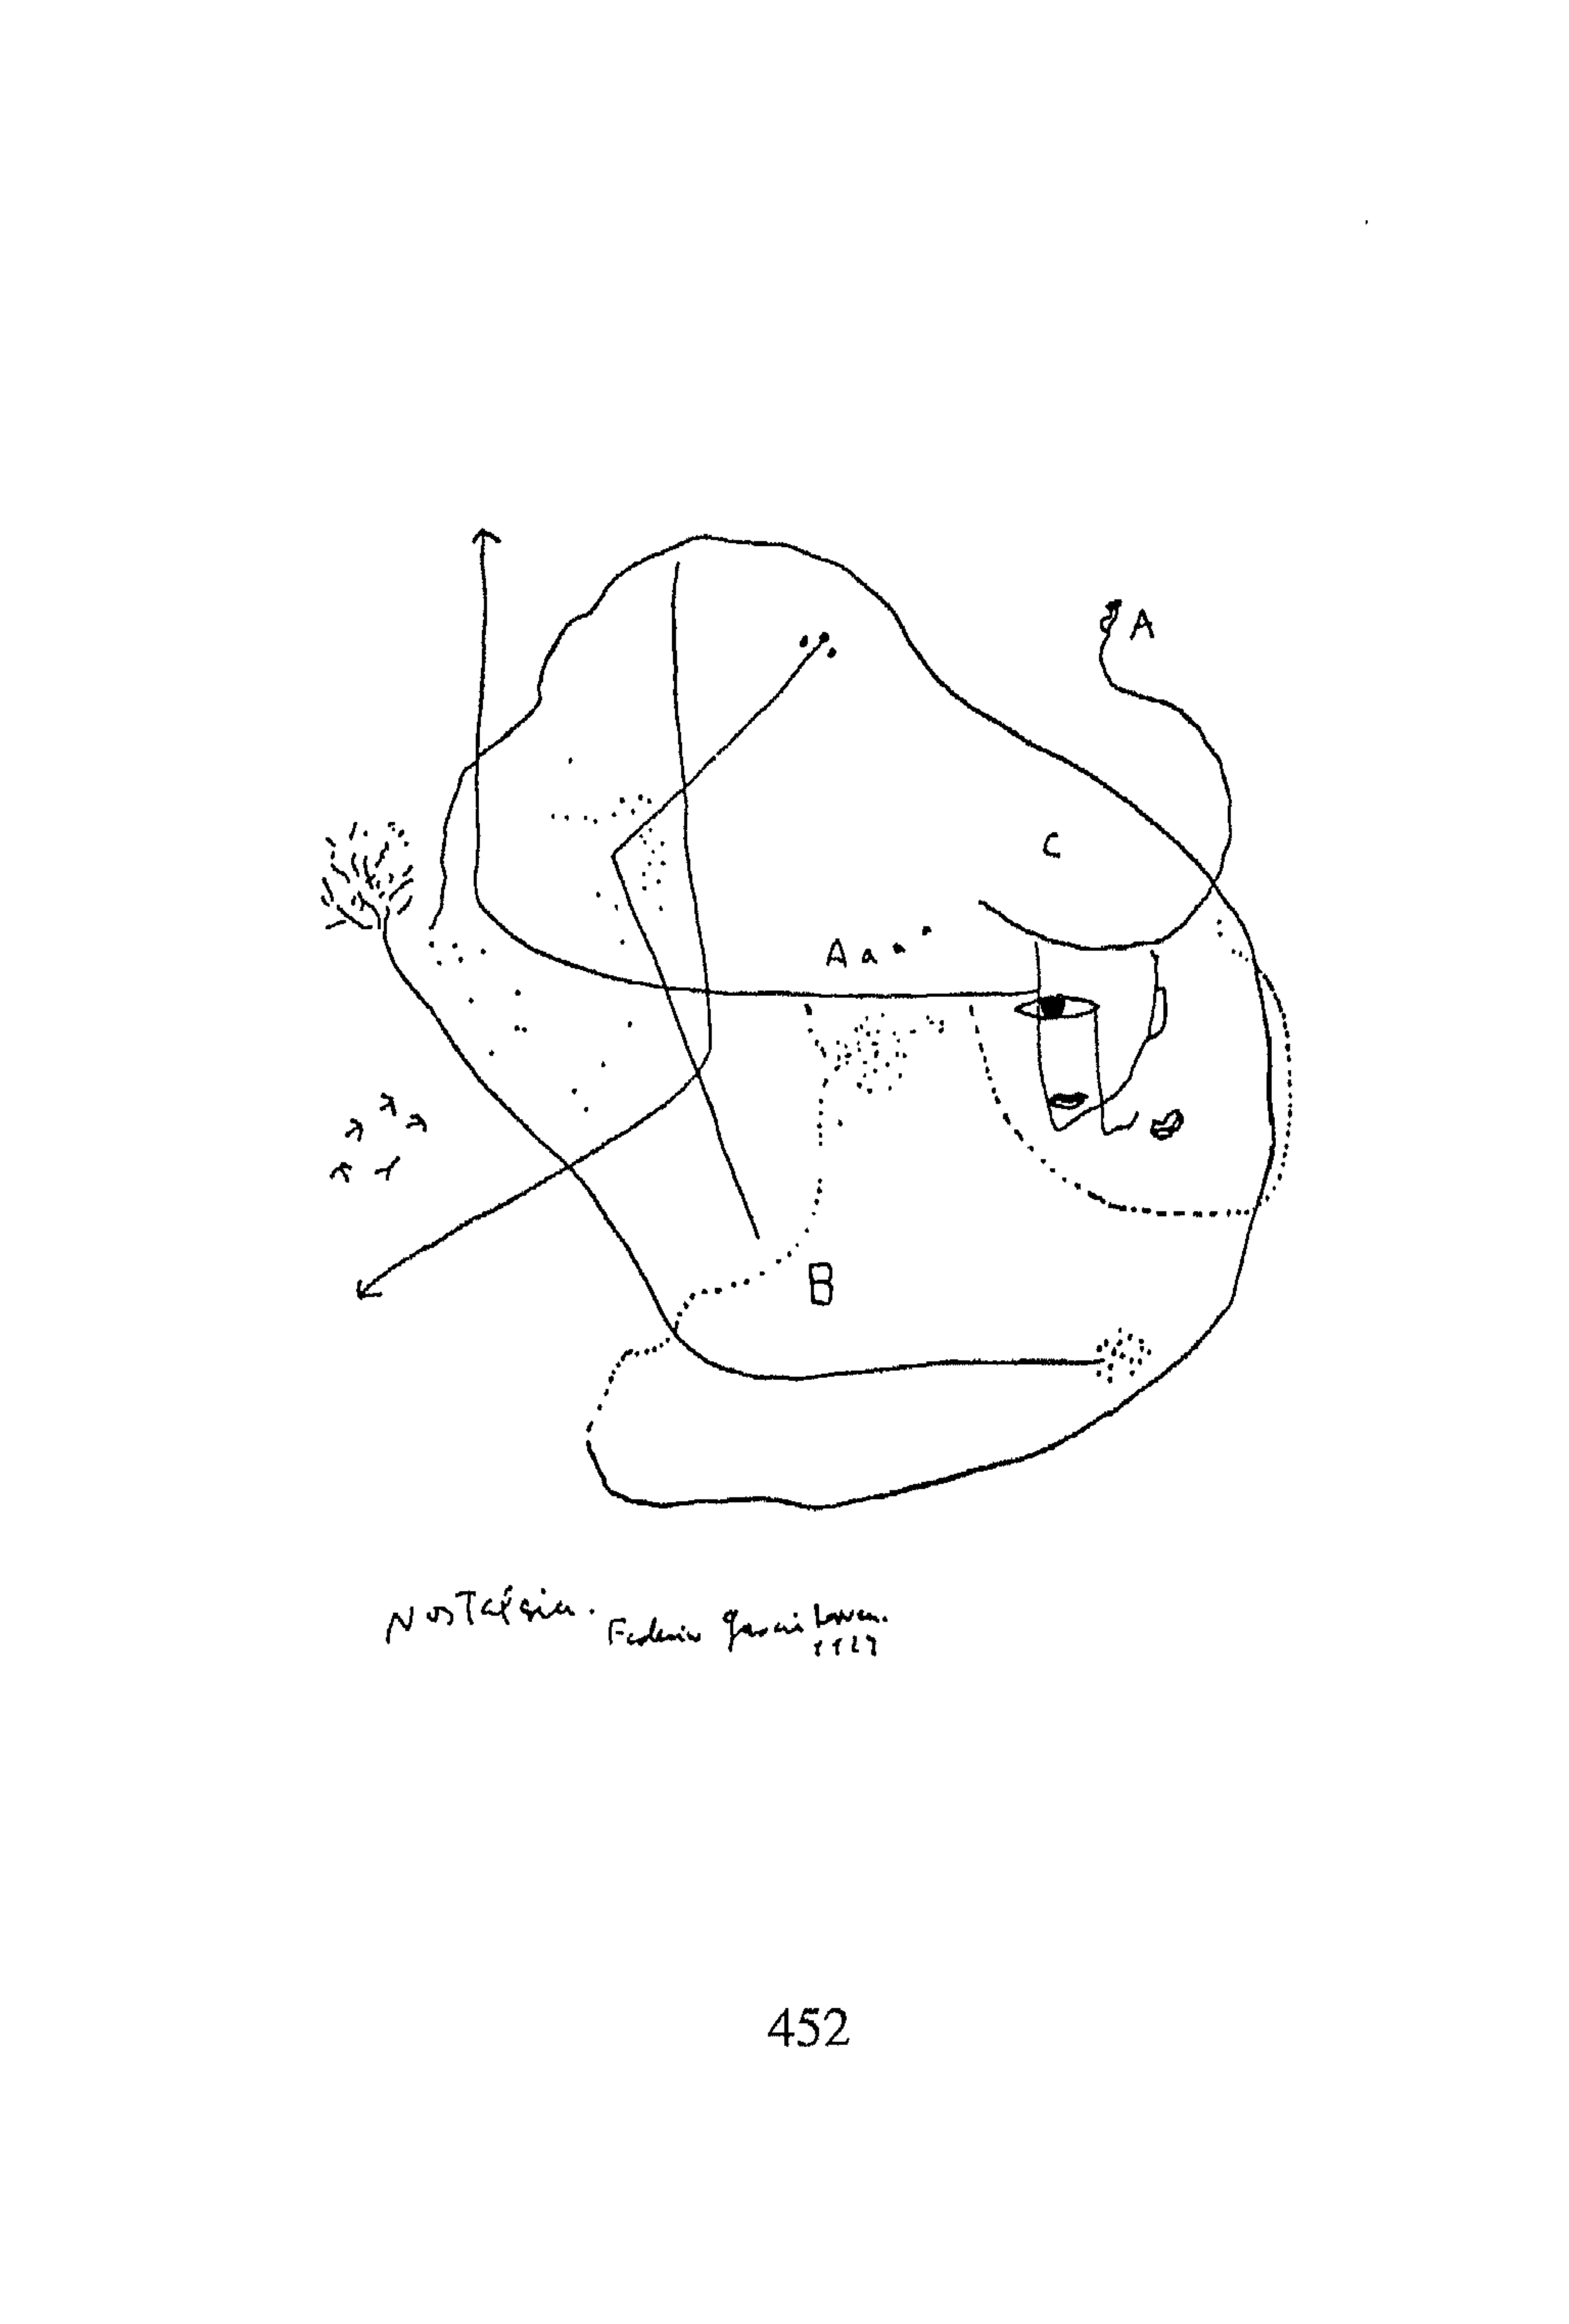 A
C
A a
B
Nostalgia.
Federico García Lorca.
1927
452